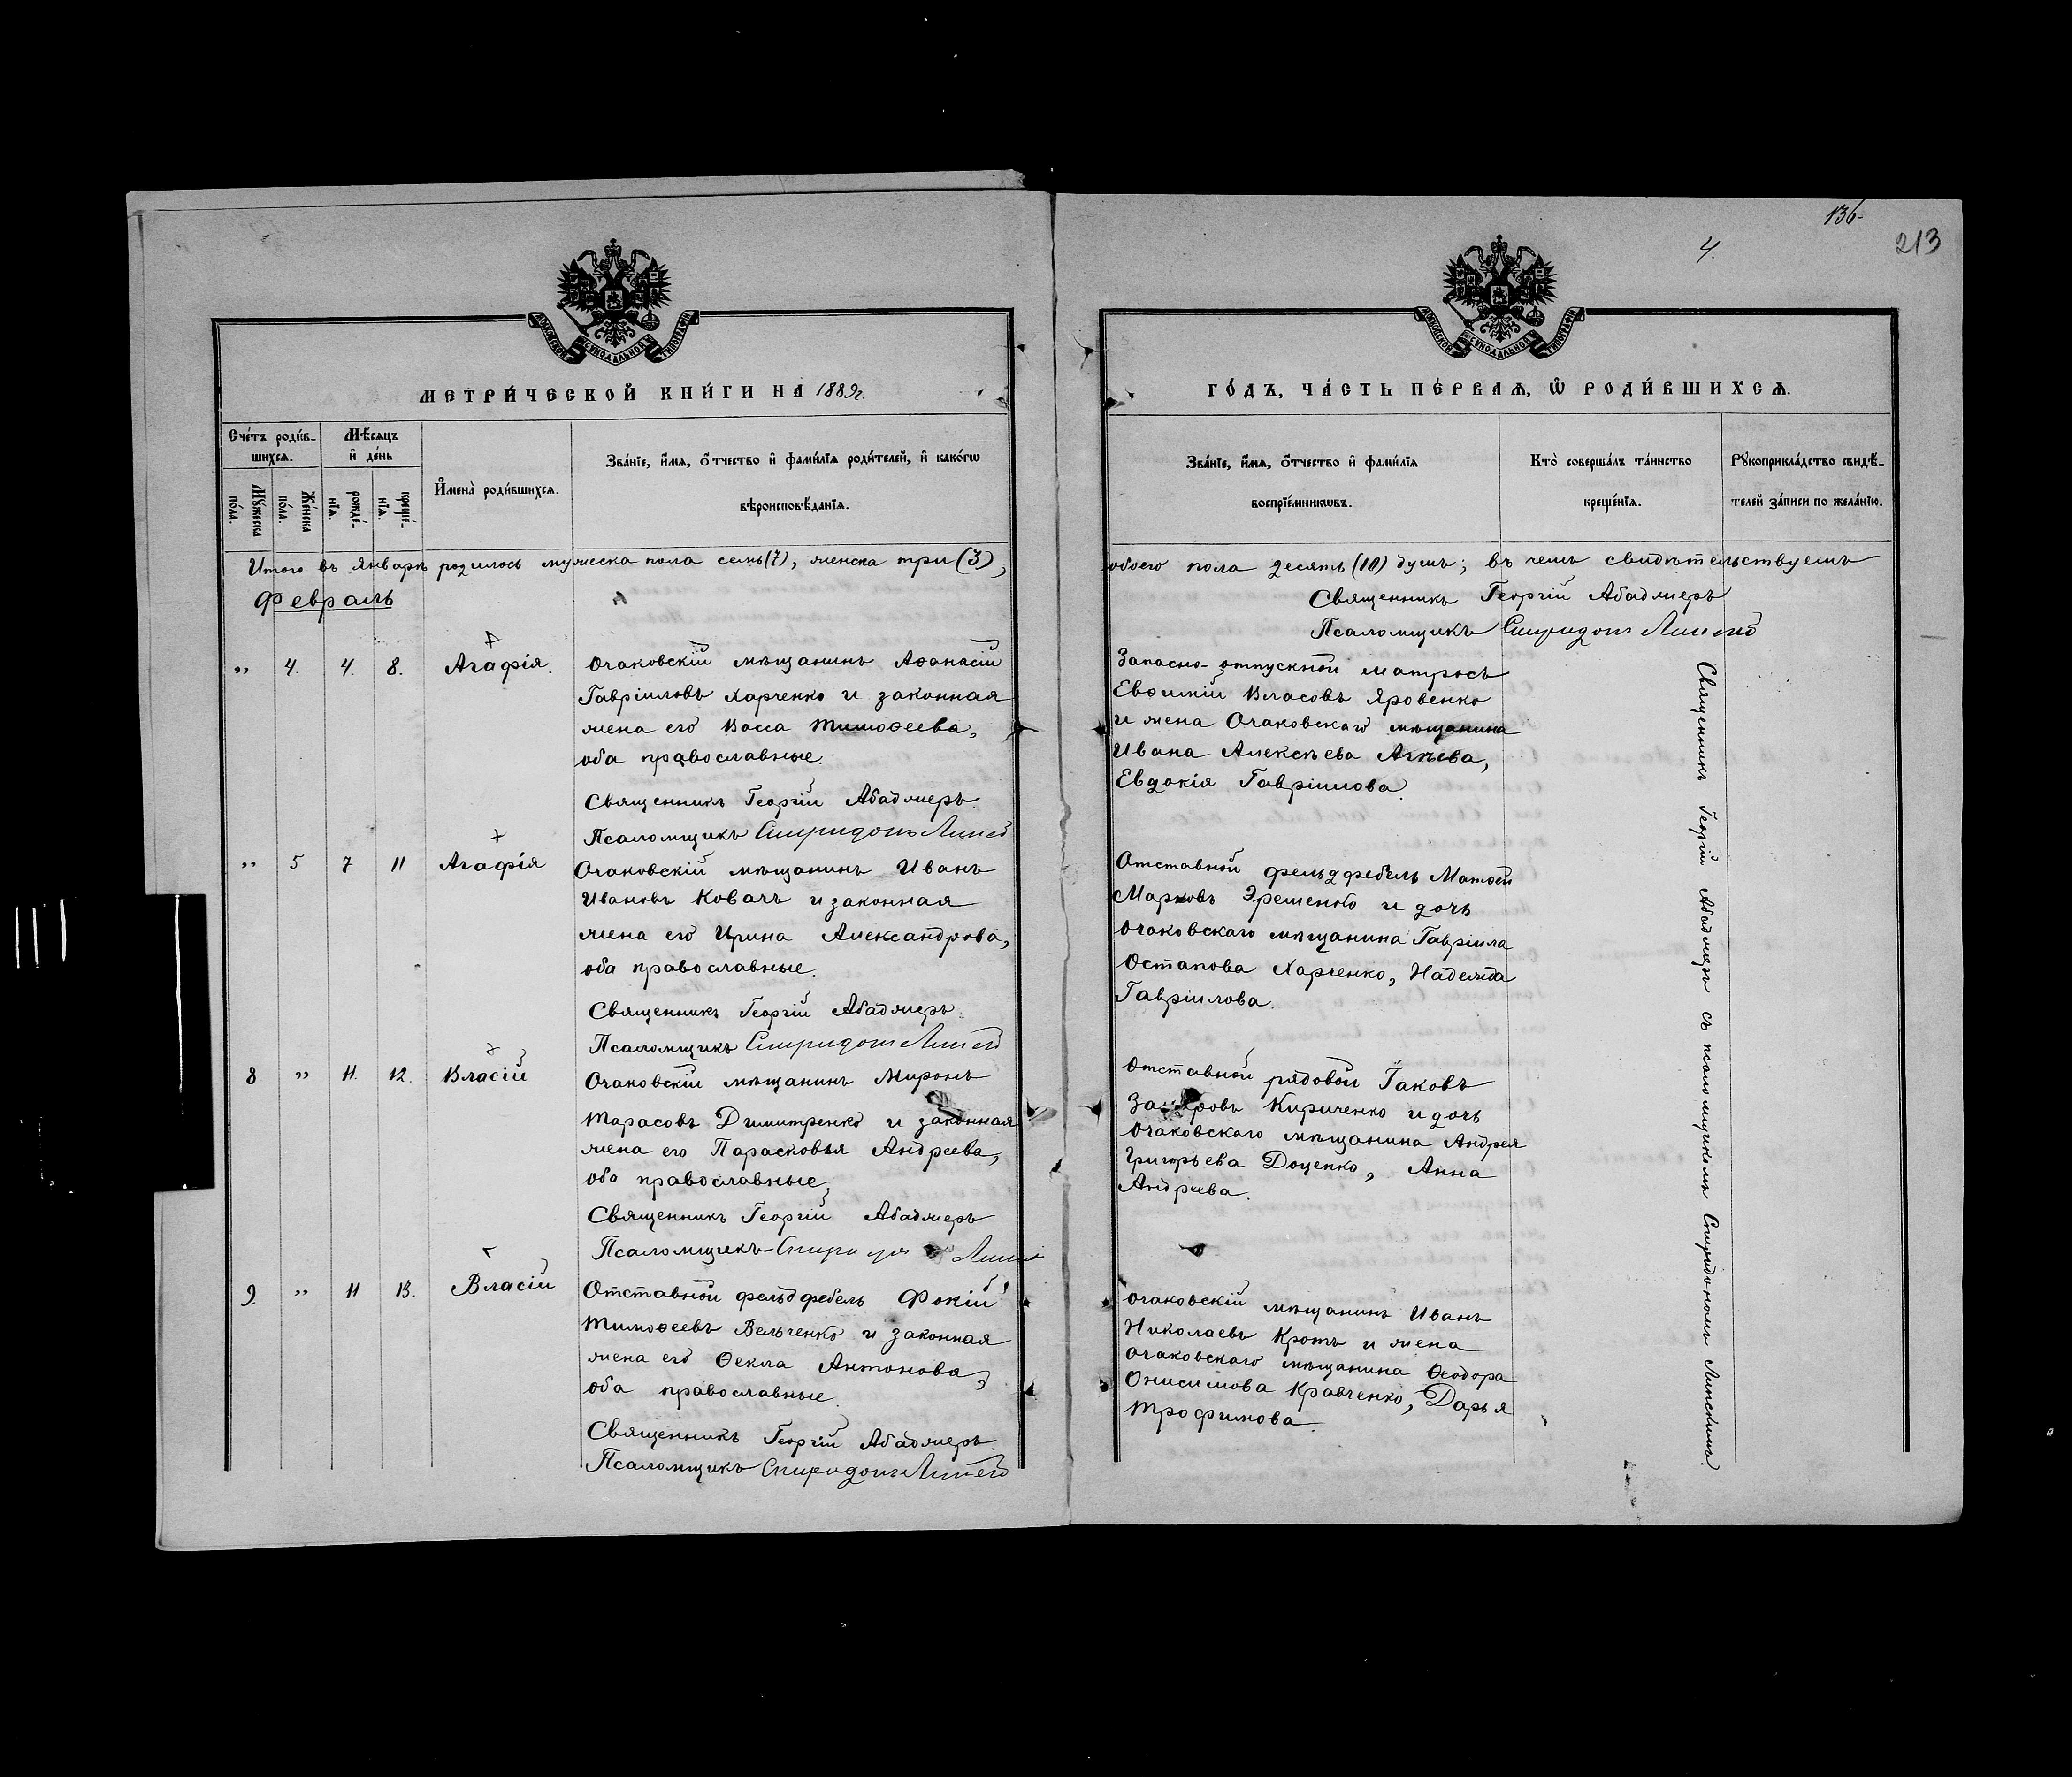 136.
213
4.
МОСКОВСКОЙ СѴНОДАЛЬНОЙ ТИПОГРАФІИ
МОСКОВСКОЙ СѴНОДАЛЬНОЙ ТИПОГРАФІИ
МЕТРИ́ЧЕСКОЙ КНИ́ГИ НА 1889г.
ГО́ДЪ, ЧА́СТЬ ПЕ́РВАѦ, Ѽ РОДИ́ВШИХСѦ.
Сче́тъ роди́в-
шихсѧ.
Мꙋ́жеска
по́ла.
Же́нска
по́ла.
Мѣ́сѧцъ
и҆ де́нь
рожде́-
нїѧ.
креще́-
нїѧ.
И҆мена̀ роди́вшихсѧ.
Зва́нїе, и҆́мѧ, ѻ҆́тчество и҆ фами́лїѧ роди́телей, и҆ како́гѡ
вѣроисповѣ́данїѧ.
Зва́нїе, и҆́мѧ, ѻ҆́тчество и҆ фами́лїѧ
воспрїе́мникѡвъ.
Кто̀ соверша́лъ та́инство
креще́нїѧ.
Рꙋкоприкла́дство свидѣ́-
телей за́писи по жела́нїю.
Итого въ Январѣ родилось мужеска пола семь (7), женска три (3),
обоего пола десять (10) душъ; въ чемъ свидѣтельствуемъ
Февраль
Священникъ Георгій Абаджеръ
Псаломщикъ Спиридонъ Линскій
„ 4. 4. 8. Агафія.
Очаковскій мѣщанинъ Аѳанасій
Гавріиловъ Харченко и законная
жена его Васса Тимоѳеева,
оба православные.
Священникъ Георгій Абаджеръ
Псаломщикъ Спиридонъ Линскій
Запасно-отпускной матросъ
Евѳимій Власовъ Яровенко
и жена Очаковскаго мѣщанина
Ивана Алексѣева Агѣева,
Евдокія Гавріилова.
„ 5 7 11 Агафія
Очаковскій мѣщанинъ Иванъ
Ивановъ Ковачъ и законная
жена его Ирина Александрова,
оба православные.
Священникъ Георгій Абаджеръ
Псаломщикъ Спиридонъ Линскій
Отставной фельдфебель Матѳей
Марковъ Эременко и дочь
очаковскаго мѣщанина Гавріила
Остапова Харченко, Надежда
Гавріилова.
8 „ 11. 12. Власій
Очаковскій мѣщанинъ Миронъ
Тарасовъ Димитренко и законная
жена его Парасковья Андреева,
оба православные,
Священникъ Георгій Абаджеръ
Псаломщикъ Спиридонъ Линскій
Отставной рядовой Іаковъ
Кириченко и дочь
очаковскаго мѣщанина Андрея
Григорьева Доценко, Анна
Андреева.
9. „ 11 13. Власій
Отставной фельдфебель Фокій
Тимоѳеевъ Вельченко и законная
жена его Ѳекла Антонова,
оба православные.
Священникъ Георгій Абаджеръ
Псаломщикъ Спиридонъ Линскій
очаковскій мѣщанинъ Иванъ
Николаевъ Кротъ и жена
очаковскаго мѣщанина Ѳеодора
Онисимова Кравченко, Дарья
Трофимова.
Священникъ Георгій Абаджеръ съ псаломщикомъ Спиридономъ Линскимъ.